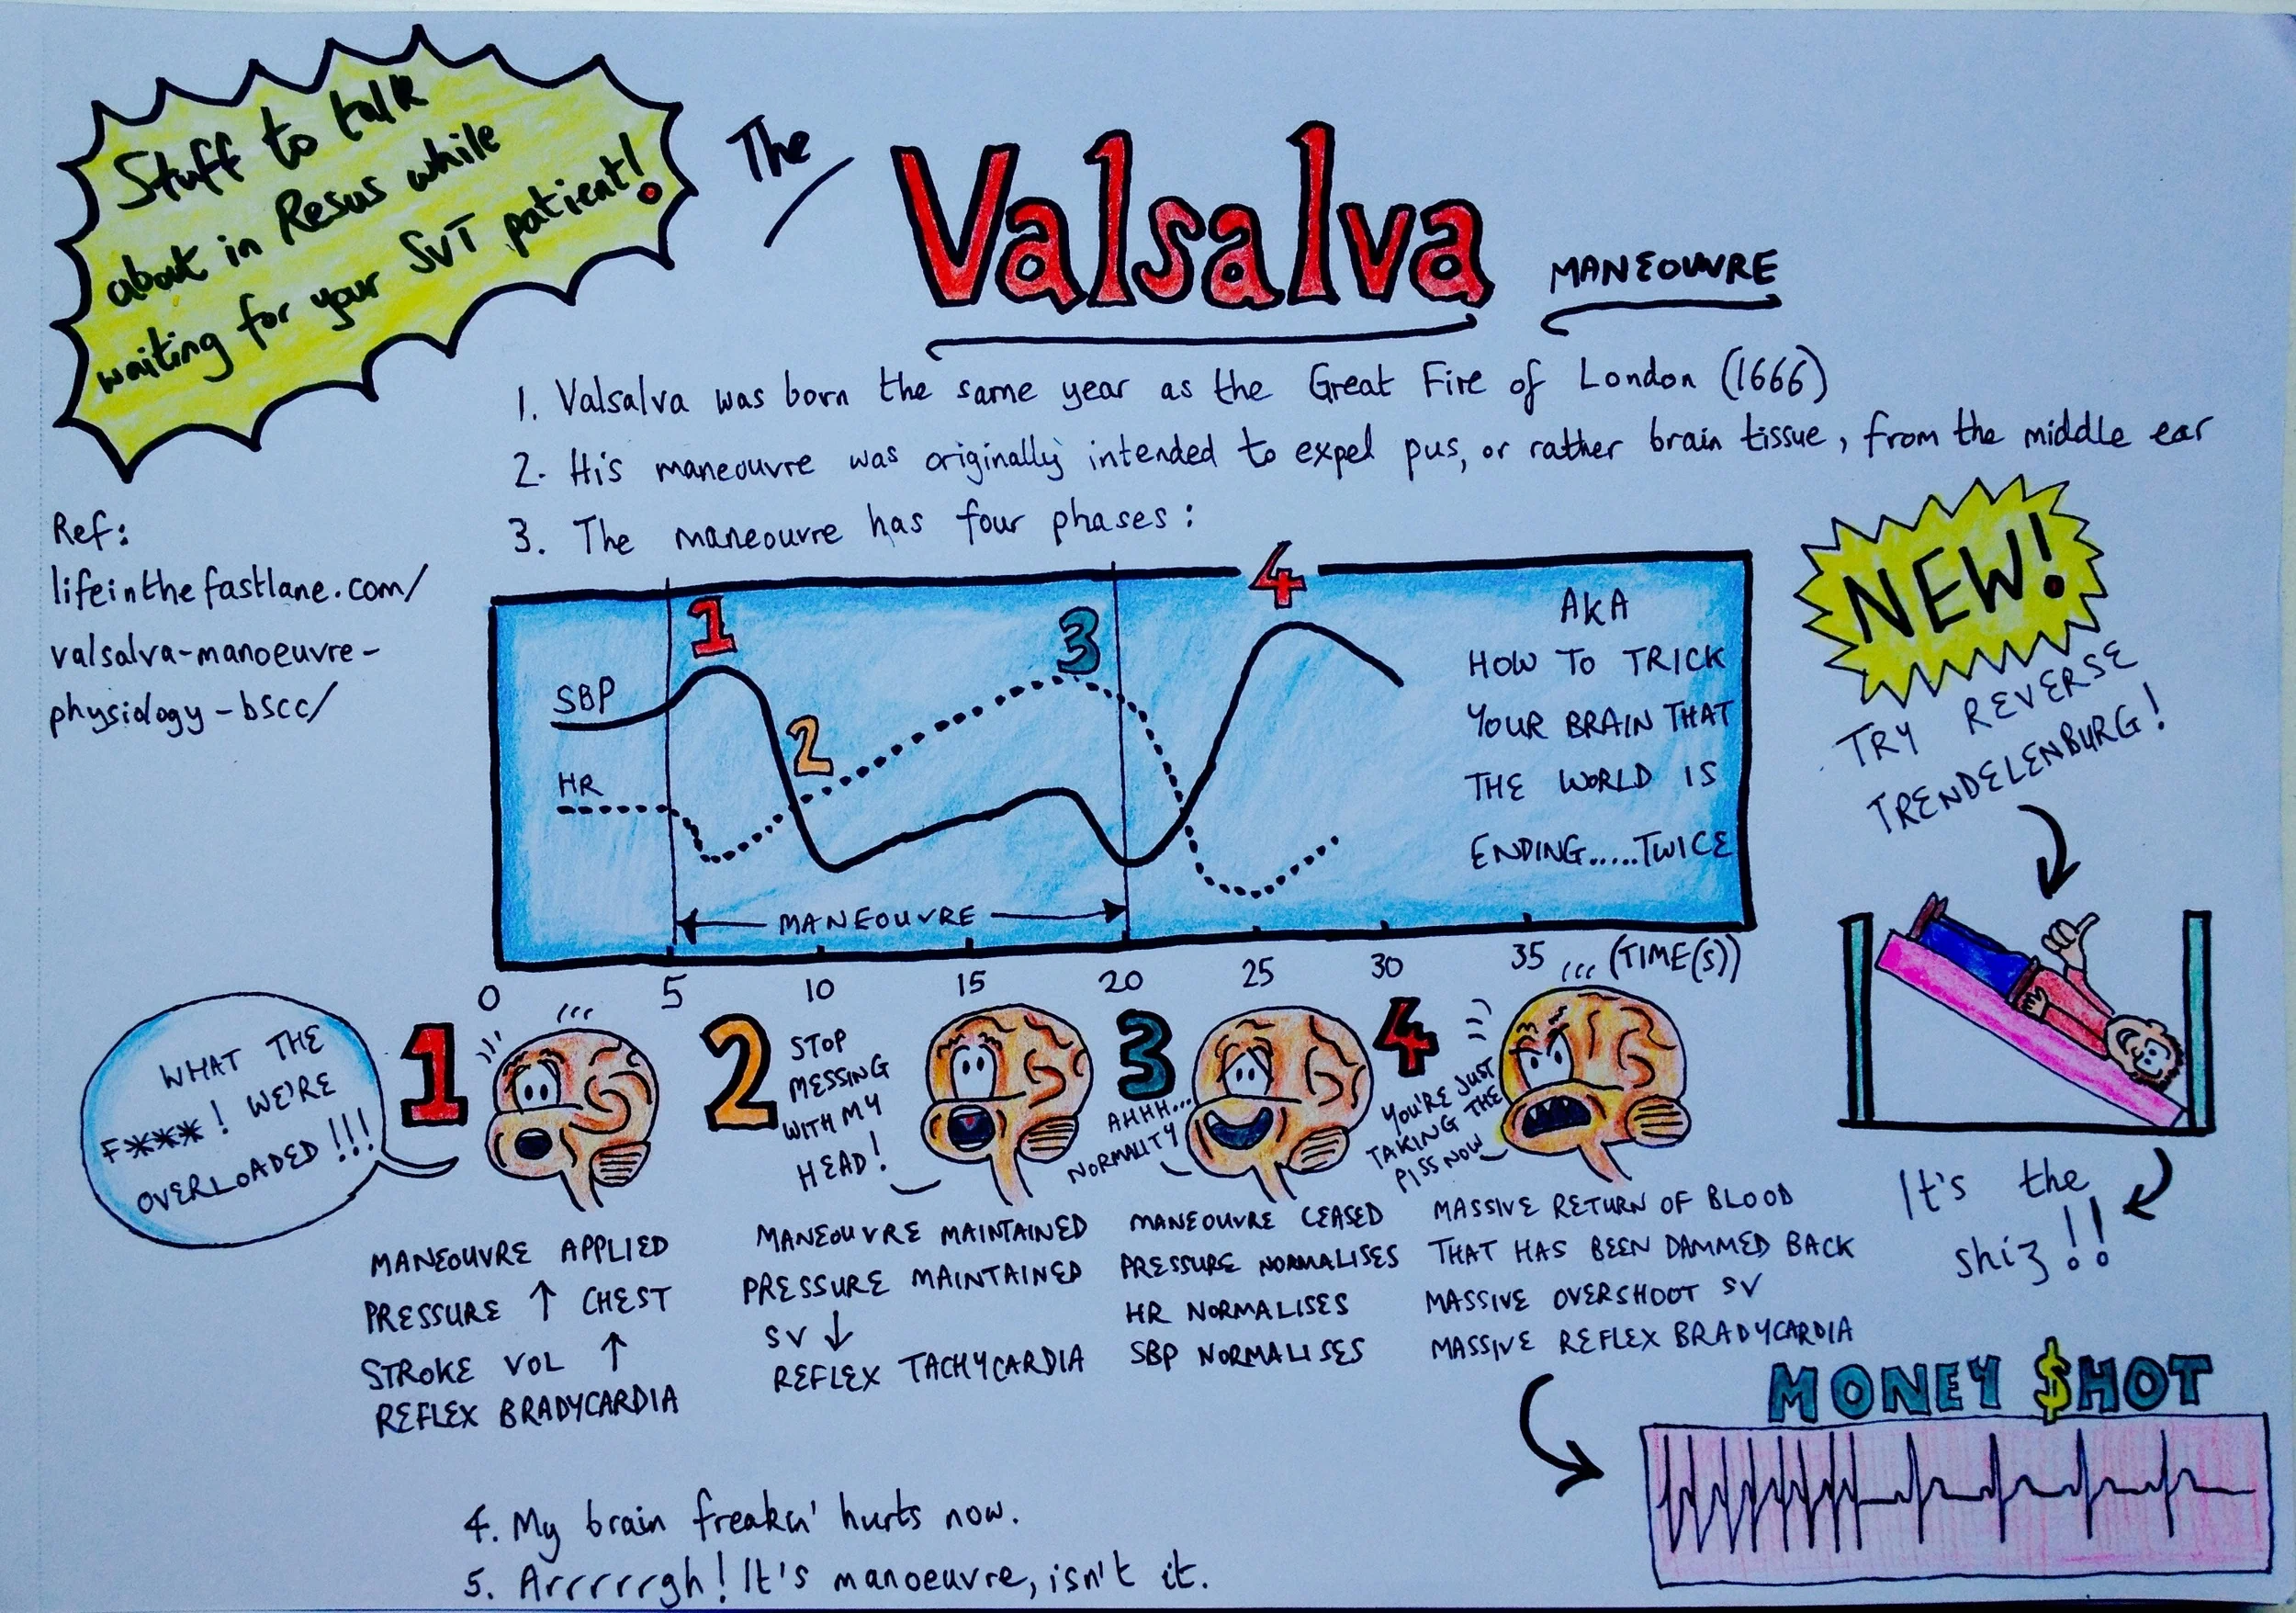 Stuff to talk
about in Resus while
waiting for your SVT patient!
The
Valsalva
MANEOUVRE
1. Valsalva was born the same year as the Great Fire of London (1666)
2. His maneouvre was originally intended to expel pus, or rather brain tissue, from the middle ear
3. The maneouvre has four phases:
Ref:
lifeinthefastlane.com/
valsalva-manoeuvre-
physiology-bscc/
NEW!
TRY REVERSE
TRENDELENBURG!
1
2
3
4
SBP
HR
MANEOUVRE
AKA
HOW TO TRICK
YOUR BRAIN THAT
THE WORLD IS
ENDING.....TWICE
0 5 10 15 20 25 30 35 (TIME(S))
WHAT THE
F***! WE'RE
OVERLOADED!!!
1
MANEOUVRE APPLIED
PRESSURE ↑ CHEST
STROKE VOL ↑
REFLEX BRADYCARDIA
2
STOP
MESSING
WITH MY
HEAD!
MANEOUVRE MAINTAINED
PRESSURE MAINTAINED
SV ↓
REFLEX TACHYCARDIA
3
AHHH...
NORMALITY
MANEOUVRE CEASED
PRESSURE NORMALISES
HR NORMALISES
SBP NORMALISES
4
YOU'RE JUST
TAKING THE
PISS NOW
MASSIVE RETURN OF BLOOD
THAT HAS BEEN DAMMED BACK
MASSIVE OVERSHOOT SV
MASSIVE REFLEX BRADYCARDIA
It's the
shiz!!
MONEY $HOT
4. My brain freakn' hurts now.
5. Arrrrrrgh! It's manoeuvre, isn't it.